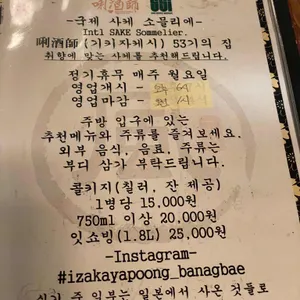 唎酒師
-국제 사케 소믈리에-
Intl SAKE Sommelier.
唎酒師(기키자케시) 53기의 집
취향에 맞는 사케를 추천해드립니다.
정기휴무 매주 월요일
영업개시 -
영업마감 -
주방 입구에 있는
추천메뉴와 주류를 즐겨보세요.
외부 음식, 음료, 주류는
부디 삼가 부탁드립니다.
콜키지(칠러, 잔 제공)
1병당 15,000원
750ml 이상 20,000원
잇쇼빙(1.8L) 25,000원
-Instagram-
#izakayapoong_banagbae
일부는 일본에서 사온 것들로